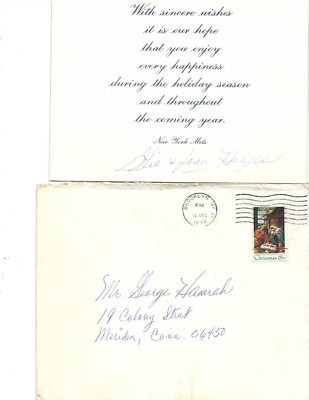 With sincere wishes
it is our hope
that you enjoy
every happiness
during the holiday season
and throughout
the coming year.
New York Mets
& Joan
BROOKLYN, NY
PM
DEC
Christmas 6c
Mr. George Hamrah
19 Colony Street
Meriden, Conn. 06450